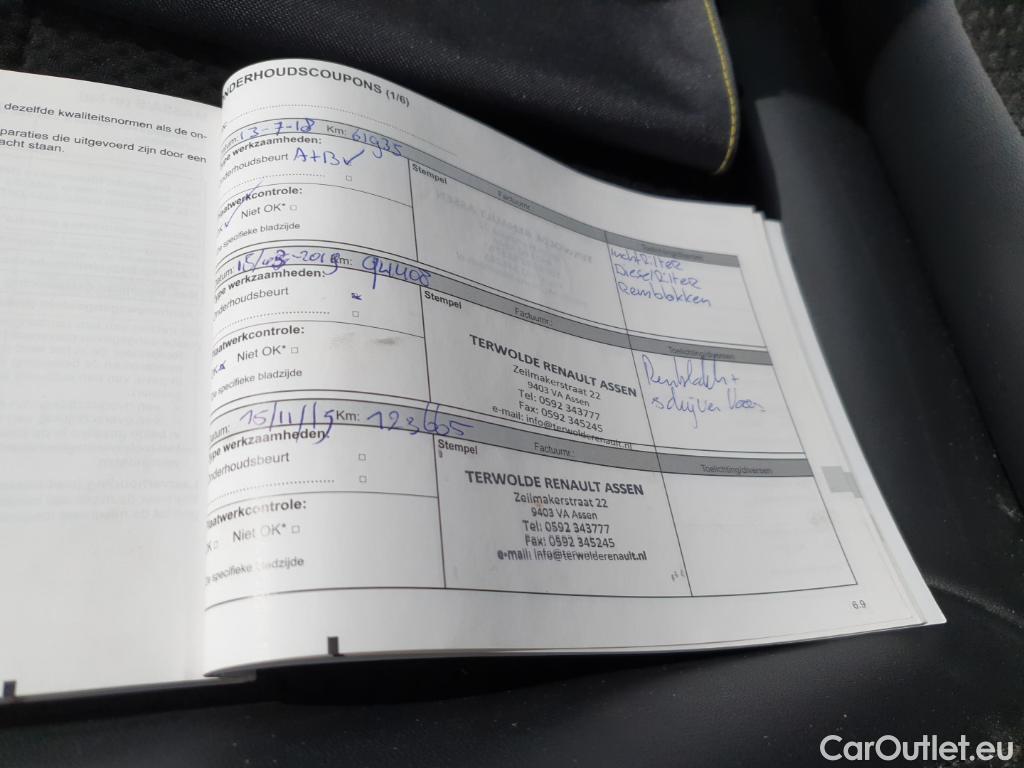 dezelfde kwaliteitsnormen als de on-
paraties die uitgevoerd zijn door een
acht staan.
NDERHOUDSCOUPONS (1/6)
atum: 13-7-18 Km: 61935
ype werkzaamheden:
nderhoudsbeurt A+B✓
aatwerkcontrole:
K ✓ Niet OK* □
e specifieke bladzijde
Stempel
Factuurnr.:
Toelichting/diversen
Luchtfilter
Dieselfilter
Remblokken
atum: 15/03-2019 Km: 94408
ype werkzaamheden:
nderhoudsbeurt
aatwerkcontrole:
OK Niet OK* □
e specifieke bladzijde
Stempel
Factuurnr.:
TERWOLDE RENAULT ASSEN
Zeilmakerstraat 22
9403 VA Assen
Tel: 0592 343777
Fax: 0592 345245
e-mail: info@terwolderenault.nl
Toelichting/diversen
schijven
atum: 15/11/19 Km: 123605
ype werkzaamheden:
nderhoudsbeurt □
aatwerkcontrole:
K □ Niet OK* □
e specifieke bladzijde
Stempel
Factuurnr.:
TERWOLDE RENAULT ASSEN
Zeilmakerstraat 22
9403 VA Assen
Tel: 0592 343777
Fax: 0592 345245
e-mail: info@terwolderenault.nl
Toelichting/diversen
6.9
CarOutlet.eu